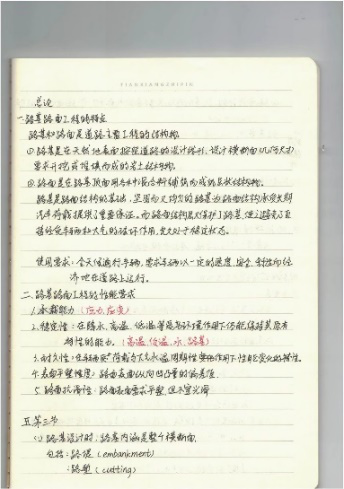 总论
一.路基路面工程的特征
路基和路面是道路主要工程的结构物.
①路基是在天然地表面按照道路的设计线形、设计横断面
要求开挖或堆填而成的岩土结构物.
②路面是在路基顶面用各种混合料铺筑而成的层状结构物.
路基是路面结构的基础,坚固的路基为路面结构承受
汽车荷载提供了重要保证。而路面结构层保护了路基,使之避免了直
接经受车辆和大气的破坏作用,长久处于稳定状态.
使用要求:全天候通行车辆,要求车辆以一定的速度,安全,舒适而经
济地在道路上运行。
二.路基路面工程的性能要求
1.承载能力(应力,应变)
2.稳定性:在降水,高温,低温等作用下仍能保持其原有
特性的能力.(高温,低温,水,路基)
3.耐久性:在车辆荷载
4.表面平整度:路面表面纵向凹凸量的偏差值.
5.路面抗滑性:路面表面要求平整,但不宜光滑
五.第三节
(1)路基设计时,路基内涵是整个横断面.
包括:路堤(embankment)
:路堑(cutting)